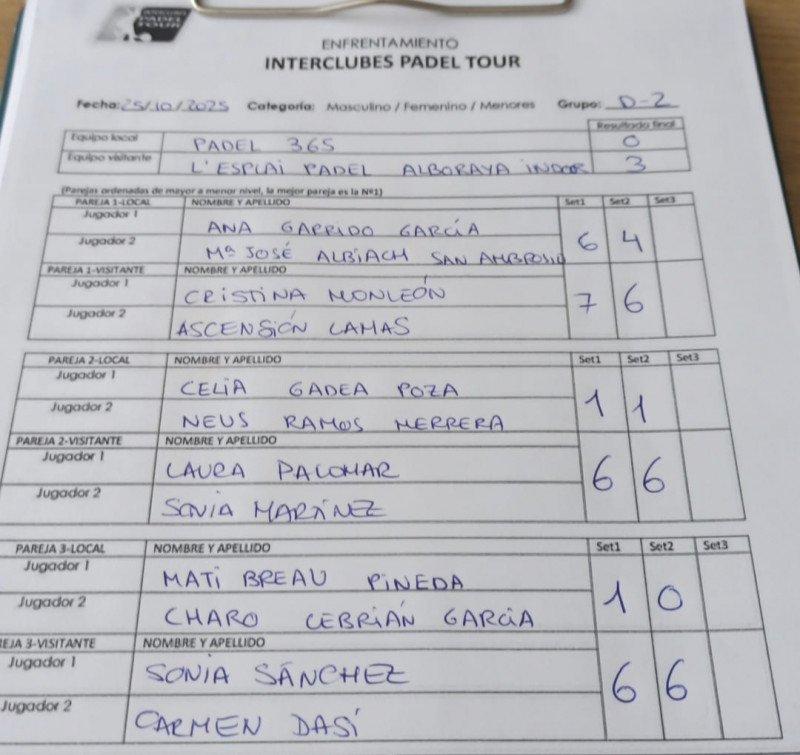 PADEL
TOUR
ENFRENTAMIENTO
INTERCLUBES PADEL TOUR
Fecha: 25/10/2025 Categoría: Masculino / Femenino / Menores Grupo: D-2
Resultado final
Equipo local PADEL 365 0
Equipo visitante L'ESPLAI PADEL ALBORAYA INDOOR 3
(Parejas ordenadas de mayor a menor nivel, la mejor pareja es la Nº1)
PAREJA 1-LOCAL NOMBRE Y APELLIDO Set1 Set2 Set3
Jugador 1 ANA GARRIDO GARCÍA
Jugador 2 Mª JOSÉ ALBIACH SAN AMBROSIO 6 4
PAREJA 1-VISITANTE NOMBRE Y APELLIDO
Jugador 1 CRISTINA MONLEÓN
Jugador 2 ASCENSIÓN LAMAS 7 6
PAREJA 2-LOCAL NOMBRE Y APELLIDO Set1 Set2 Set3
Jugador 1 CELIA GADEA POZA
Jugador 2 NEUS RAMOS HERRERA 1 1
PAREJA 2-VISITANTE NOMBRE Y APELLIDO
Jugador 1 LAURA PALOMAR
Jugador 2 SONIA MARTÍNEZ 6 6
PAREJA 3-LOCAL NOMBRE Y APELLIDO Set1 Set2 Set3
Jugador 1 MATI BREAU PINEDA
Jugador 2 CHARO CEBRIÁN GARCIA 1 0
EJA 3-VISITANTE NOMBRE Y APELLIDO
Jugador 1 SONIA SÁNCHEZ
Jugador 2 CARMEN DASÍ 6 6